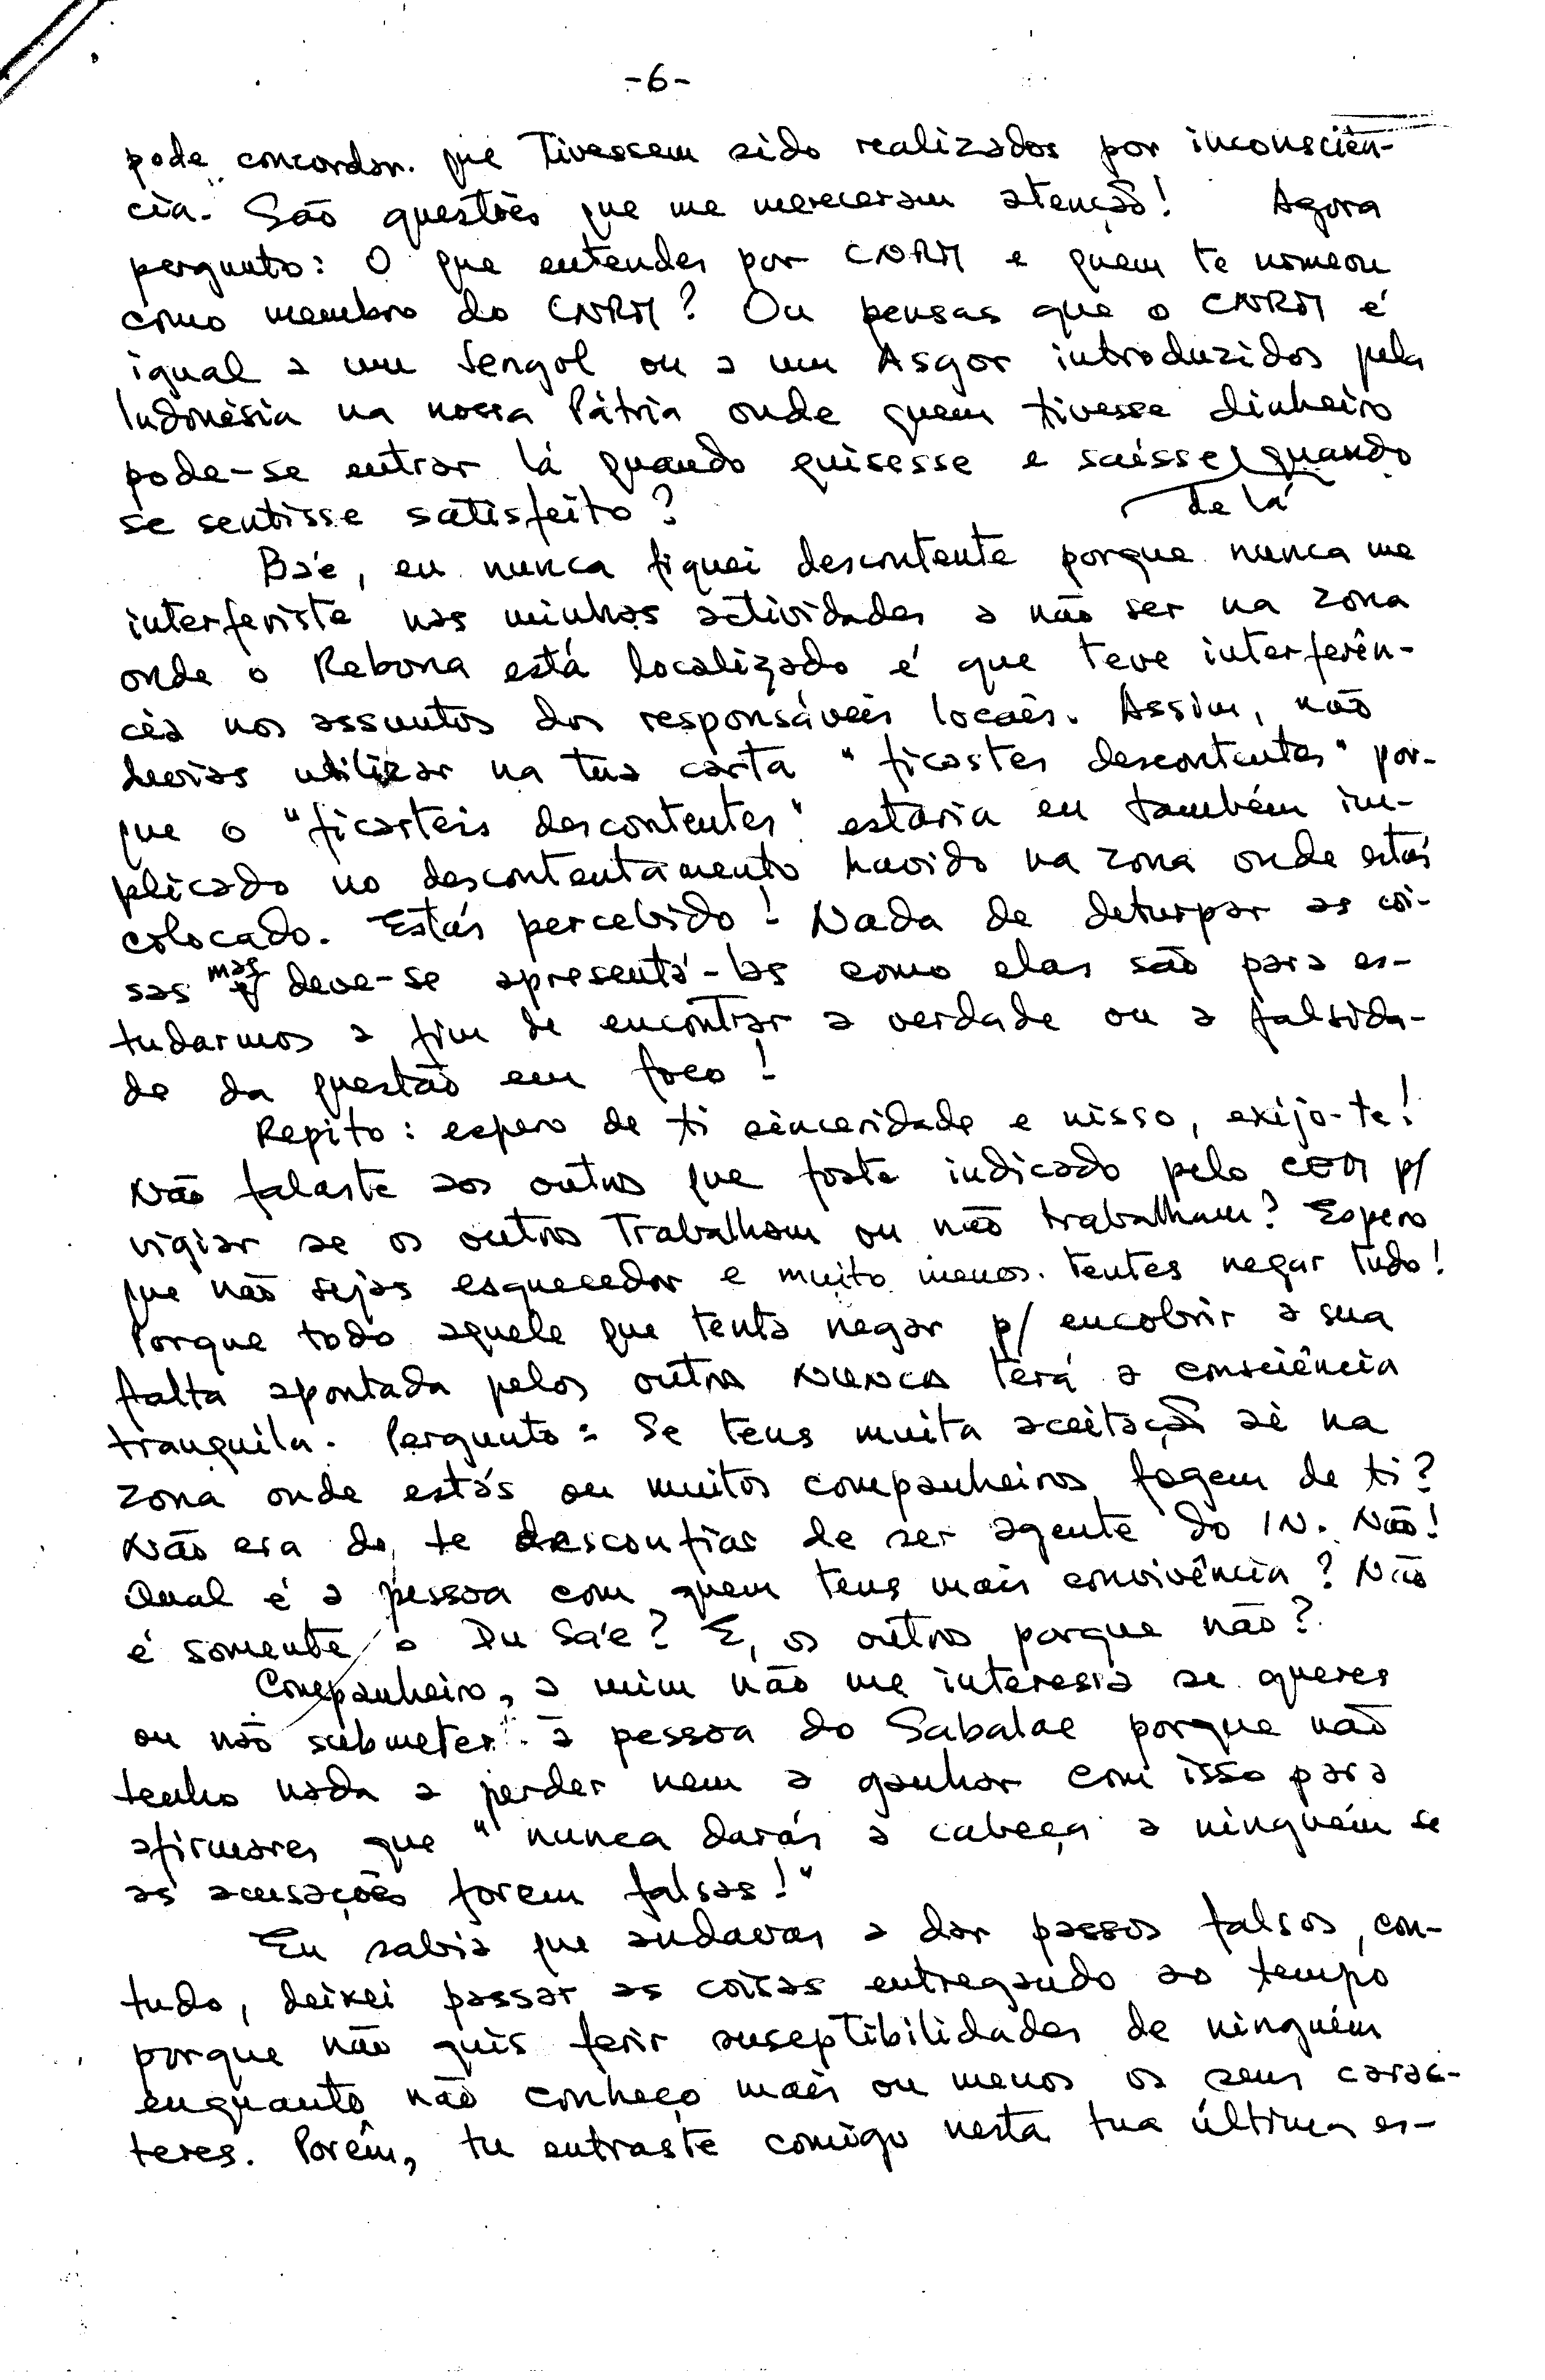 -6-
pode concordar que tivessem sido realizados por inconsciên-
cia. São questões que me mereceram atenção! Agora
pergunto: O que entendes por CNRM e quem te nomeou
como membro do CNRM? Ou pensas que o CNRM é
igual a um Sengol ou a um Asgor introduzidos pela
Indonésia na nossa Pátria onde quem tivesse dinheiro
pode-se entrar lá quando quisesse e saísse quando
de lá
se sentisse satisfeito?
Bãe, eu nunca fiquei descontente porque nunca me
interferiste nas minhas actividades a não ser na zona
onde o Rebona está localizado é que teve interferên-
cia nos assuntos dos responsáveis locaes. Assim, não
devias utilizar na tua carta "ficastes descontentes" por-
que o "ficasteis descontentes" estaria eu também im-
plicado no descontentamento havido na zona onde estás
colocado. Estás percebido! Nada de deturpar as coi-
sas mas deve-se apresentá-las como elas são para es-
tudarmos a fim de encontrar a verdade ou a falsida-
de da questão em foco!
Repito: espero de ti sinceridade e nisso, exijo-te!
Não falaste aos outros que foste indicado pelo CEM p/
vigiar se os outros trabalham ou não trabalham? Espero
que não sejas esquecedor e muito menos tentes negar tudo!
Porque todo aquele que tenta negar p/ encobrir a sua
falta apontada pelos outros NUNCA terá a consciência
tranquila. Pergunto: Se tens muita aceitação aí na
zona onde estás ou muitos companheiros fogem de ti?
Não era de te desconfiar de ser agente do IN. Não!
Qual é a pessoa com quem tens mais convivência? Não
é somente o Du Sa'e? E, os outros porque não?
Companheiro, a mim não me interessa se queres
ou não submeter à pessoa do Sabalae porque não
tenho nada a perder nem a ganhar com isso para
afirmares que "nunca darás a cabeça a ninguém se
as acusações forem falsas!"
Eu sabia que andavas a dar passos falsos, con-
tudo, deixei passar as coisas entregando ao tempo
porque não quis ferir susceptibilidades de ninguém
enquanto não conheço mais ou menos os seus carac-
teres. Porêm, tu entraste comigo nesta tua última es-